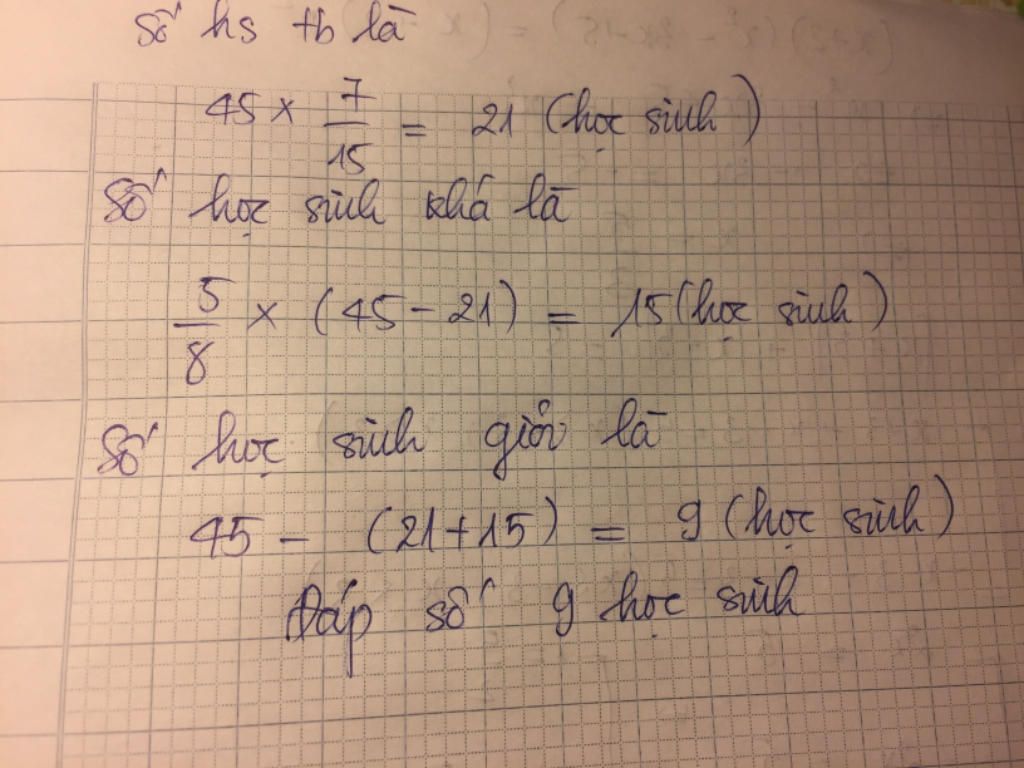 Số hs tb là
45 × 7/15 = 21 (học sinh)
Số học sinh khá là
5/8 × (45 - 21) = 15 (học sinh)
Số học sinh giỏi là
45 - (21 + 15) = 9 (học sinh)
Đáp số 9 học sinh